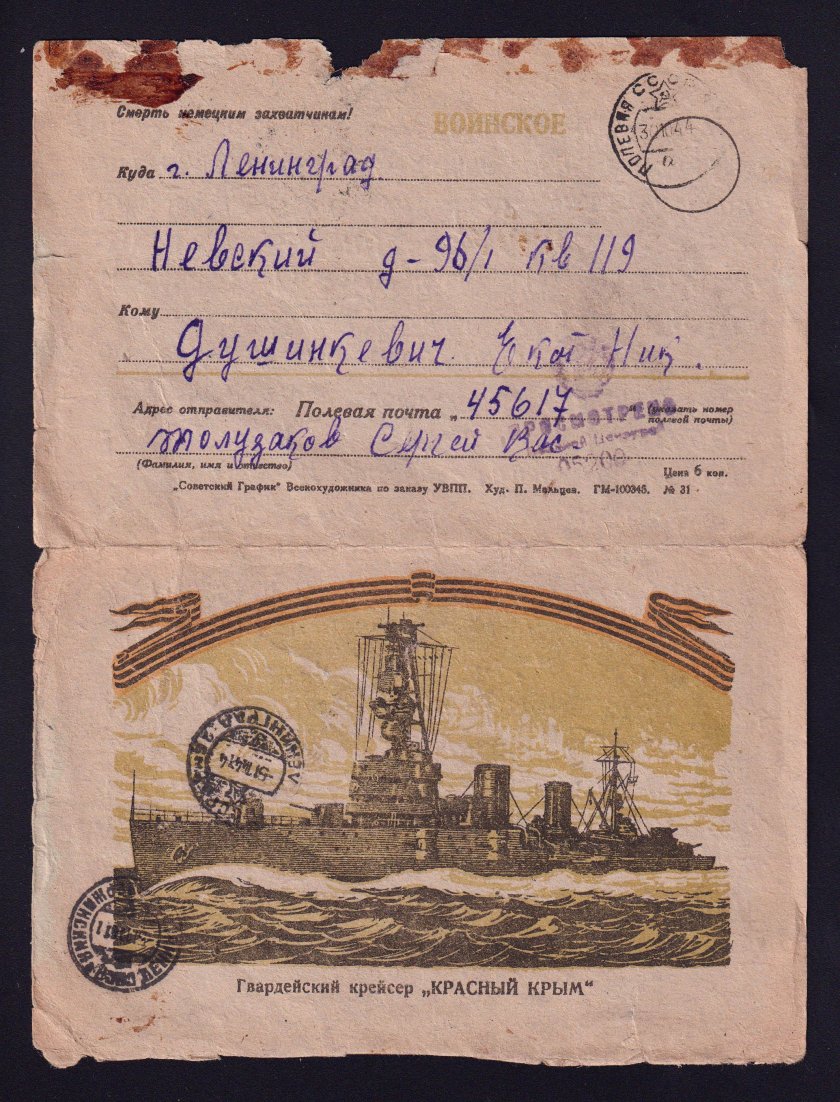 Смерть немецким захватчикам!
ВОИНСКОЕ
ПОЛЕВАЯ СССР
44
Куда г. Ленинград
Невский д-96/1 кв 119
Кому
Душинкевич Екат Ник.
Адрес отправителя: Полевая почта „45617“ (указать номер полевой почты)
Сергей Вас
(Фамилия, имя и отчество)
ПРОСМОТРЕНО
Цена 6 коп.
„Советский График“ Всекохудожника по заказу УВПП. Худ. П. Мальцев. ГМ-100345. № 31
ЛЕНИНГРАД
Гвардейский крейсер „КРАСНЫЙ КРЫМ“